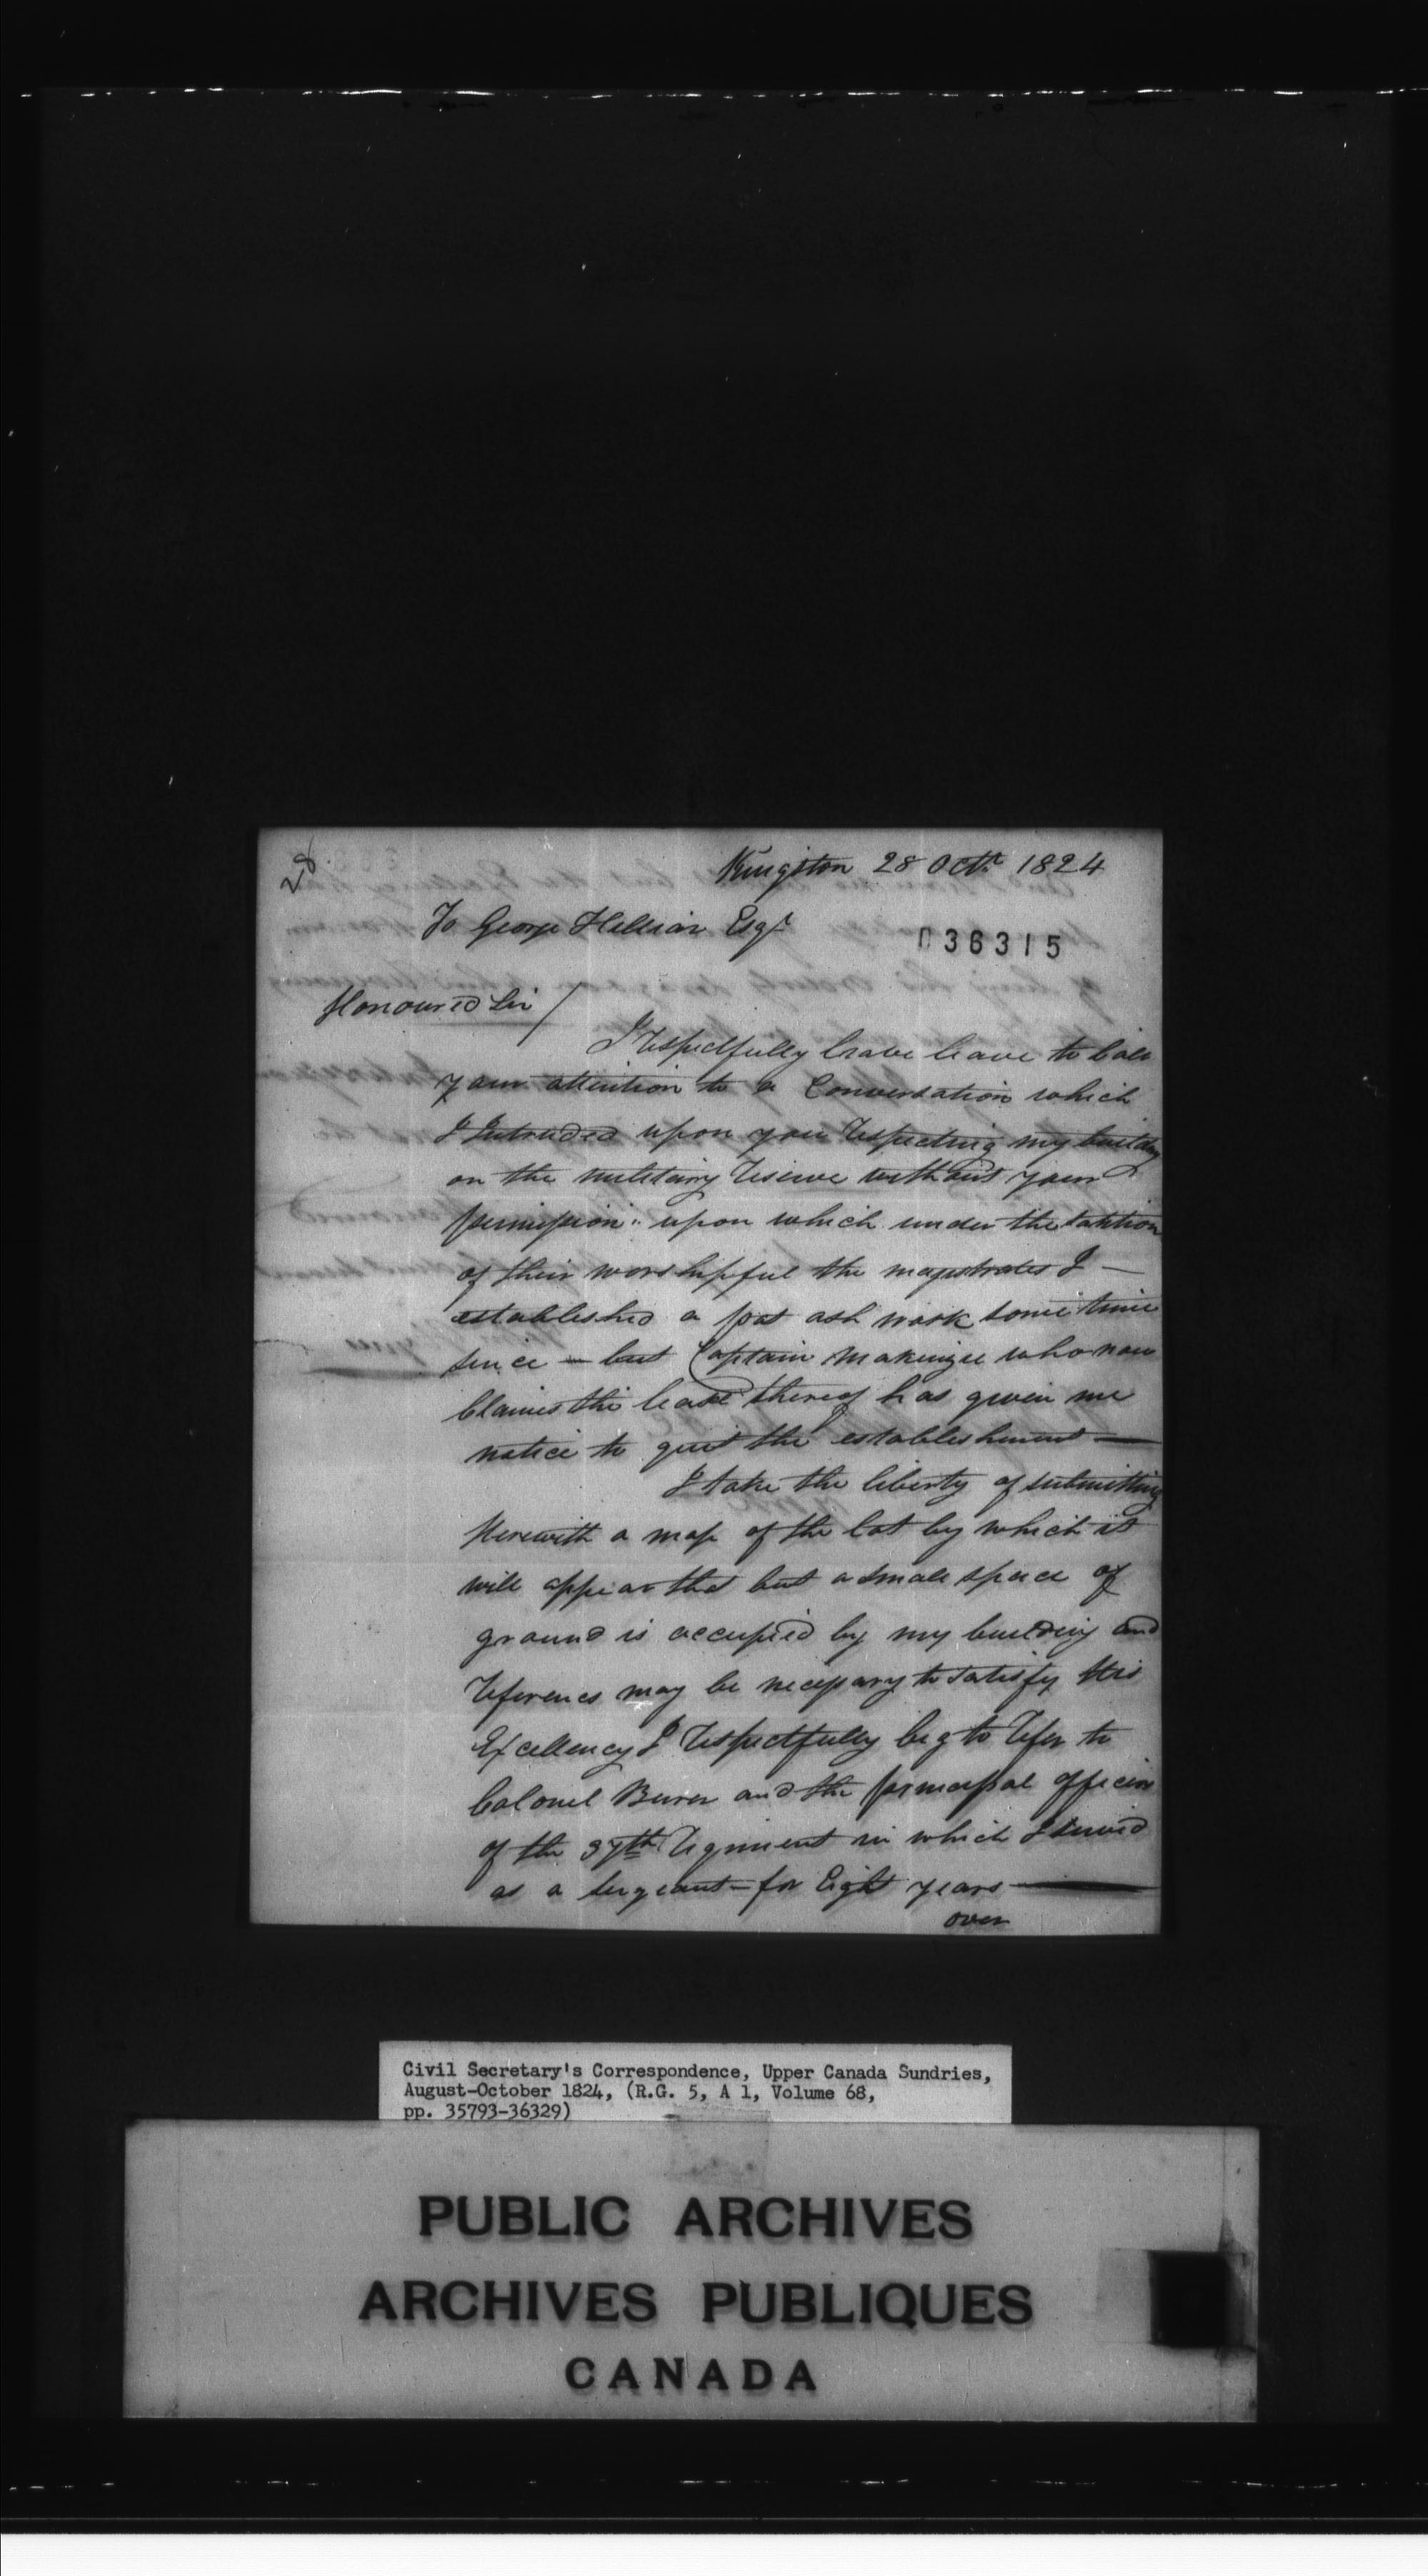 28
Kingston 28 Octr 1824
To George Hillier Esqr
036315
Honoured Sir /
I respectfully crave leave to call
your attention to a Conversation which
I Intruded upon you respecting my building
on the military reserve without your
permission upon which under the sanction
of their worshipful the magistrates I —
established a pot ash work some time
since — but Captain Makenzie who now
Claims the lease thereof has given me
notice to quit the establishment —
I take the liberty of submitting
Herewith a map of the lot by which it
will appear that but a small space of
ground is occupied by my building and
referencs may be necessary to satisfy His
Excellency I respectfully beg to refer to
Colonel and the principal officers
of the 37th regiment in which I served
as a sergeant — for Eight years —
over
Civil Secretary's Correspondence, Upper Canada Sundries,
August-October 1824, (R.G. 5, A 1, Volume 68,
pp. 35793-36329)
PUBLIC ARCHIVES
ARCHIVES PUBLIQUES
CANADA